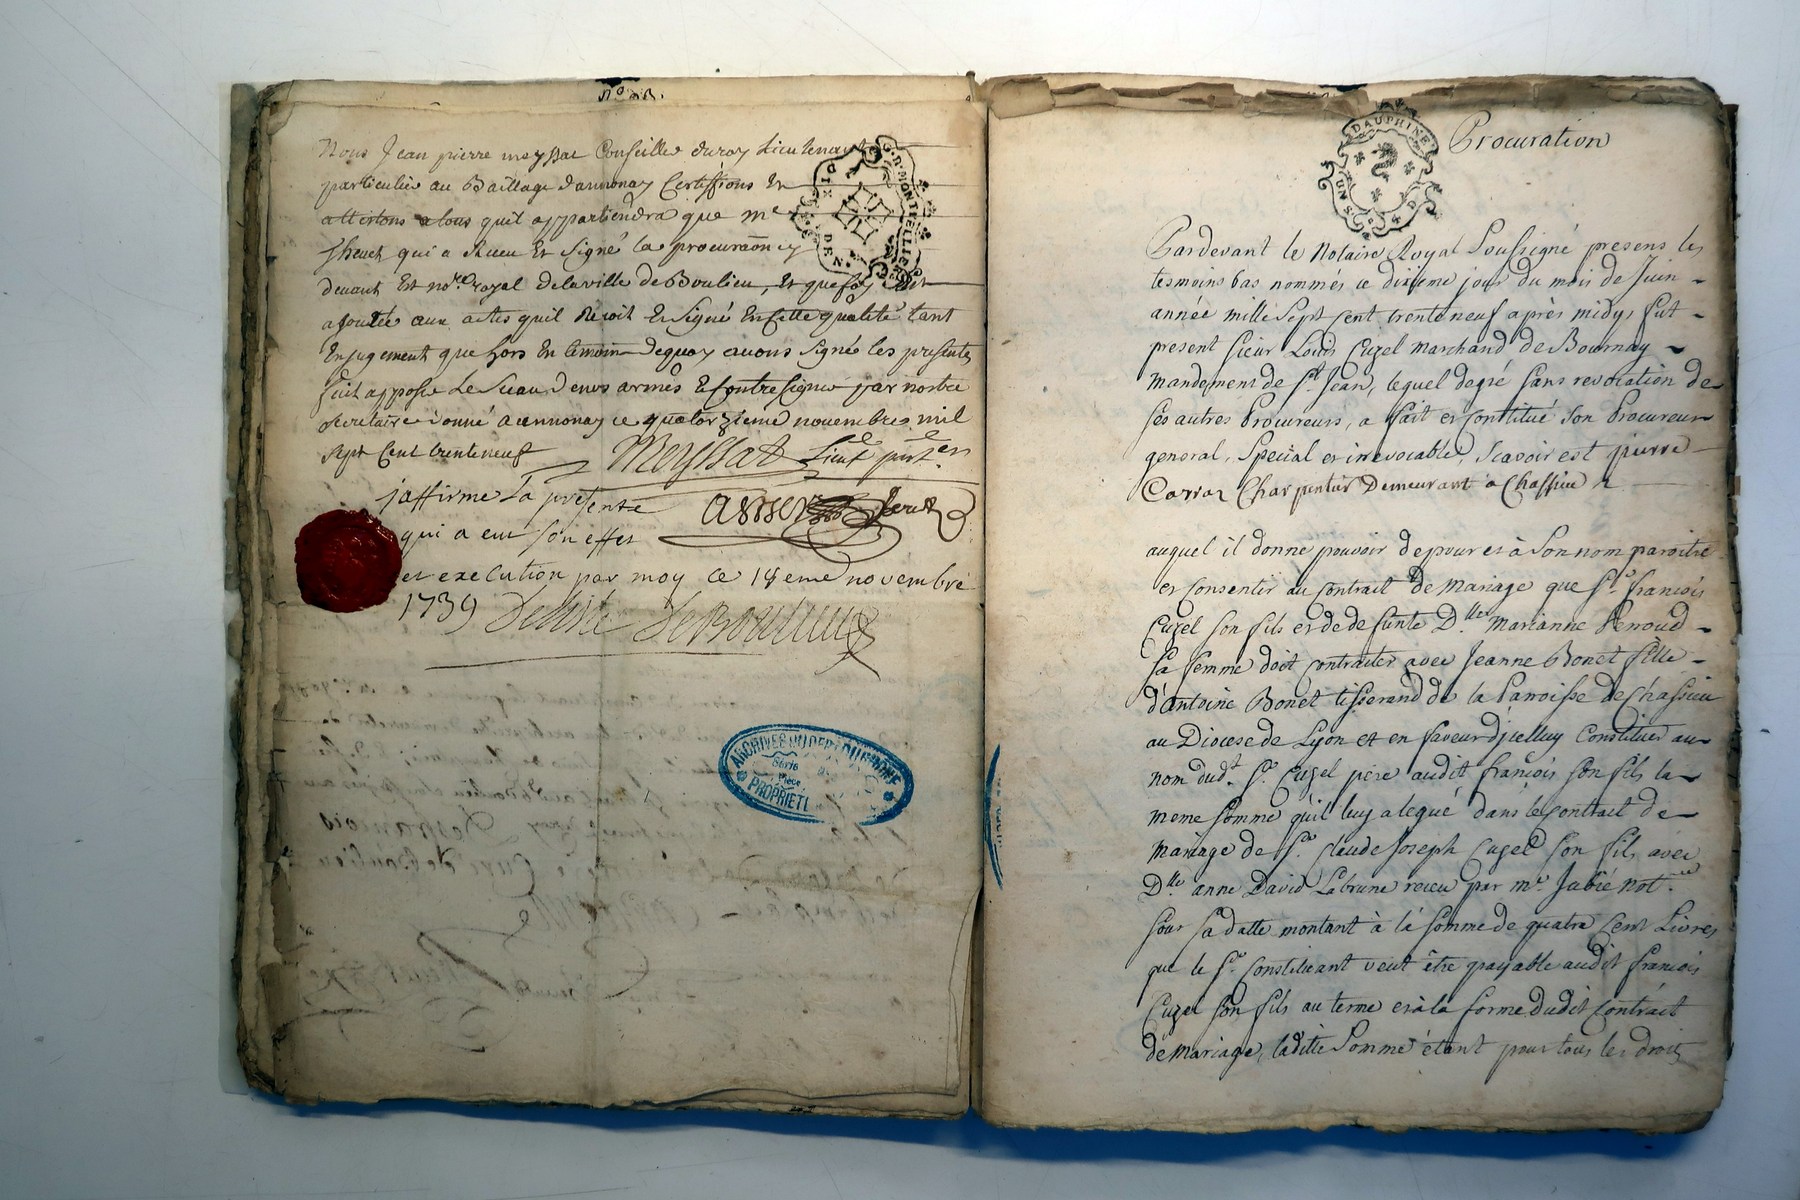 Nous Jean pierre meyssat Conseiller du roy Lieutenant
particulier au Baillage d'annonay Certiffions Et
attestons a tous quil appartiendra que me
qui a Receu Et signé la procuraõn cy
devant Est nore royal de la ville de Boulieu, Et que foy Est
ajoutée aux actes quil Reçoit Et signé En cette qualité tant
En jugement que hors En temoin de quoy avons signé les presentes
fait apposer Le sceau de nos armes Et contresigner par nostre
secretaire donné a annonay ce quatorzieme novembre mil
sept Cent trente neuf Meyssat Lieut. part.er
j'affirme La presente
qui a eut son effet
et execution par moy ce 18eme novembre
1739
ARCHIVES DU DEPT DU RHONE
Série
Pièce
PROPRIETE
G. D. MONTPELLIER
DEN
DAUPHINE
UN S. P D
Procuration
Pardevant le Notaire Royal Soussigné presens les
tesmoins bas nommés ce dixieme jour du mois de Juin
année mille sept cent trente neuf après midy, fut
present sieur Louis Cuzel marchand de Bournay
mandement de St. Jean, lequel degré sans revocation de
ses autres Procureurs, a fait et constitué son Procureur
general, special et irrevocable, scavoir est pierre
Carra Charpentier Demeurant à Chassieu
auquel il donne pouvoir de pour et à son nom paroitre
et consentir au contrait de mariage que Sr. françois
Cuzel son fils et de defunte Dlle Marianne Penoud
sa femme doit contracter avec Jeanne Bonet fille
d'Antoine Bonet tisserand de la Parroisse de Chassieu
au Diocese de Lyon et en faveur d'icelluy Constituer au
nom dud.t Sr. Cuzel père audit françois son fils la
meme somme qu'il luy a legué dans le contrait de
mariage de Sr. Claude Joseph Cuzel son fils avec
Dlle anne David Labrune receu par me Jubié notre
sour sa datte montant à la somme de quatre cent Livres
que le Sr. Constituant veut être payable audit françois
Cuzel son fils au terme et à la forme dudit Contrait
de mariage, ladite somme étant pour tous les droits